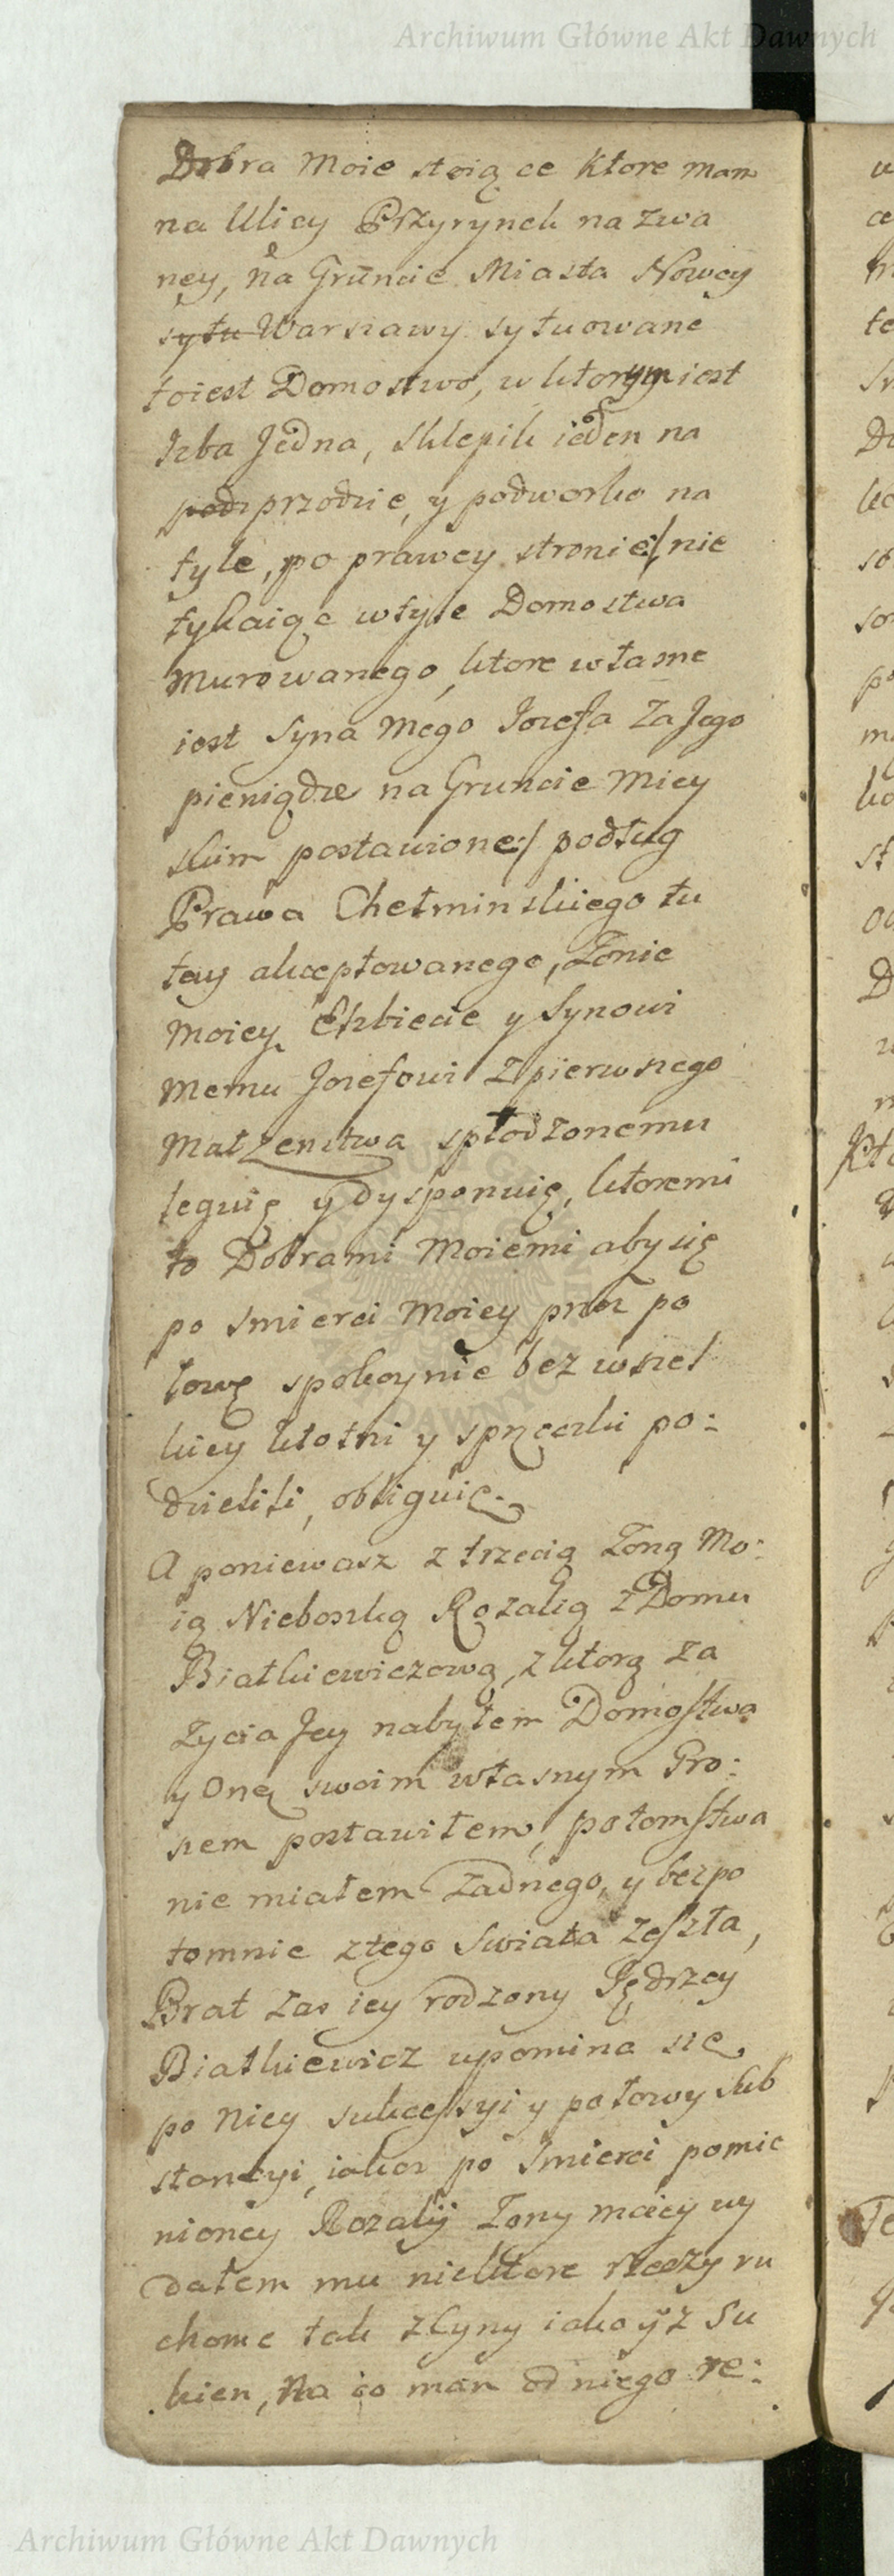 Archiwum Główne Akt Dawnych
Dobra Moie stoiące Ktore mam
na Ulicy Przyrynek nazwa
ney, na Gruncie Miasta Nowey
sytu Warszawy sytuowane
toiest Domostwo, w ktorym iest
Izba Jedna, sklepik ieden na
podz przodzie, y podworko na
tyle, po prawey stronie/ nie
tykaiąc w tyle Domostwa
Murowanego, ktore własne
iest Syna Mego Jozefa za Jego
pieniądze na Gruncie Miey
skim postawione:/ podług
Prawa Chełminskiego tu
tey akceptowanego, Zonie
Moiey Elzbiecie y Synowi
Memu Jozefowi z pierwszego
Małzenstwa spłodzonemu
leguię y dysponuię, ktoremi
to Dobrami Moiemi aby się
po smierci Moiey przez po
łowę spokoynie bez wszel
kiey kłotni y sprzeczki po:
dzielili, obliguię.
A poniewasz z trzecią Zoną Mo:
ią Nieboszką Rozalią z Domu
Białkiewiczową, z ktorą za
Zycia Jey nabyłem Domostwa
y One swoim własnym Gro:
szem postawiłem, potomstwa
nie miałem Zadnego, y bezpo
tomnie z tego Swiata Zeszła,
Brat zas iey rodzony Jędrzey
Białkiewicz upomina się
po Niey sukcessyi y połowy Sub
stancyi, iakoz po Smierci pomie
nioney Rozalij Zony moiey wy
dałem mu niektore rzeczy ru
chome tak z Cyny iako y z Su
kien, Na co mam od niego re:
Archiwum Główne Akt Dawnych